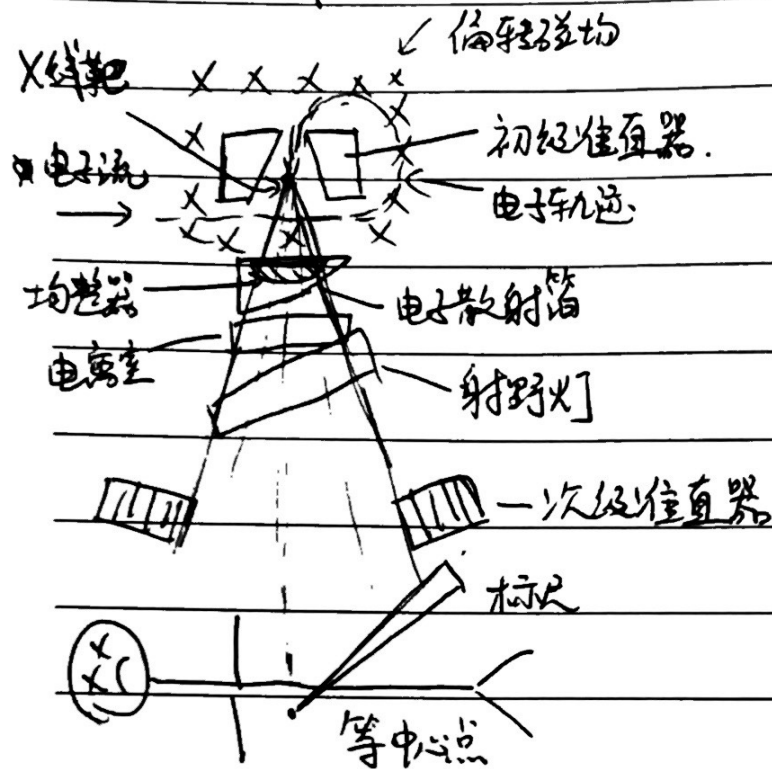 偏转磁场
X线靶
初级准直器.
电子流
电子轨迹
均整器
电子散射箔
电离室
射野灯
次级准直器
标尺
等中心点